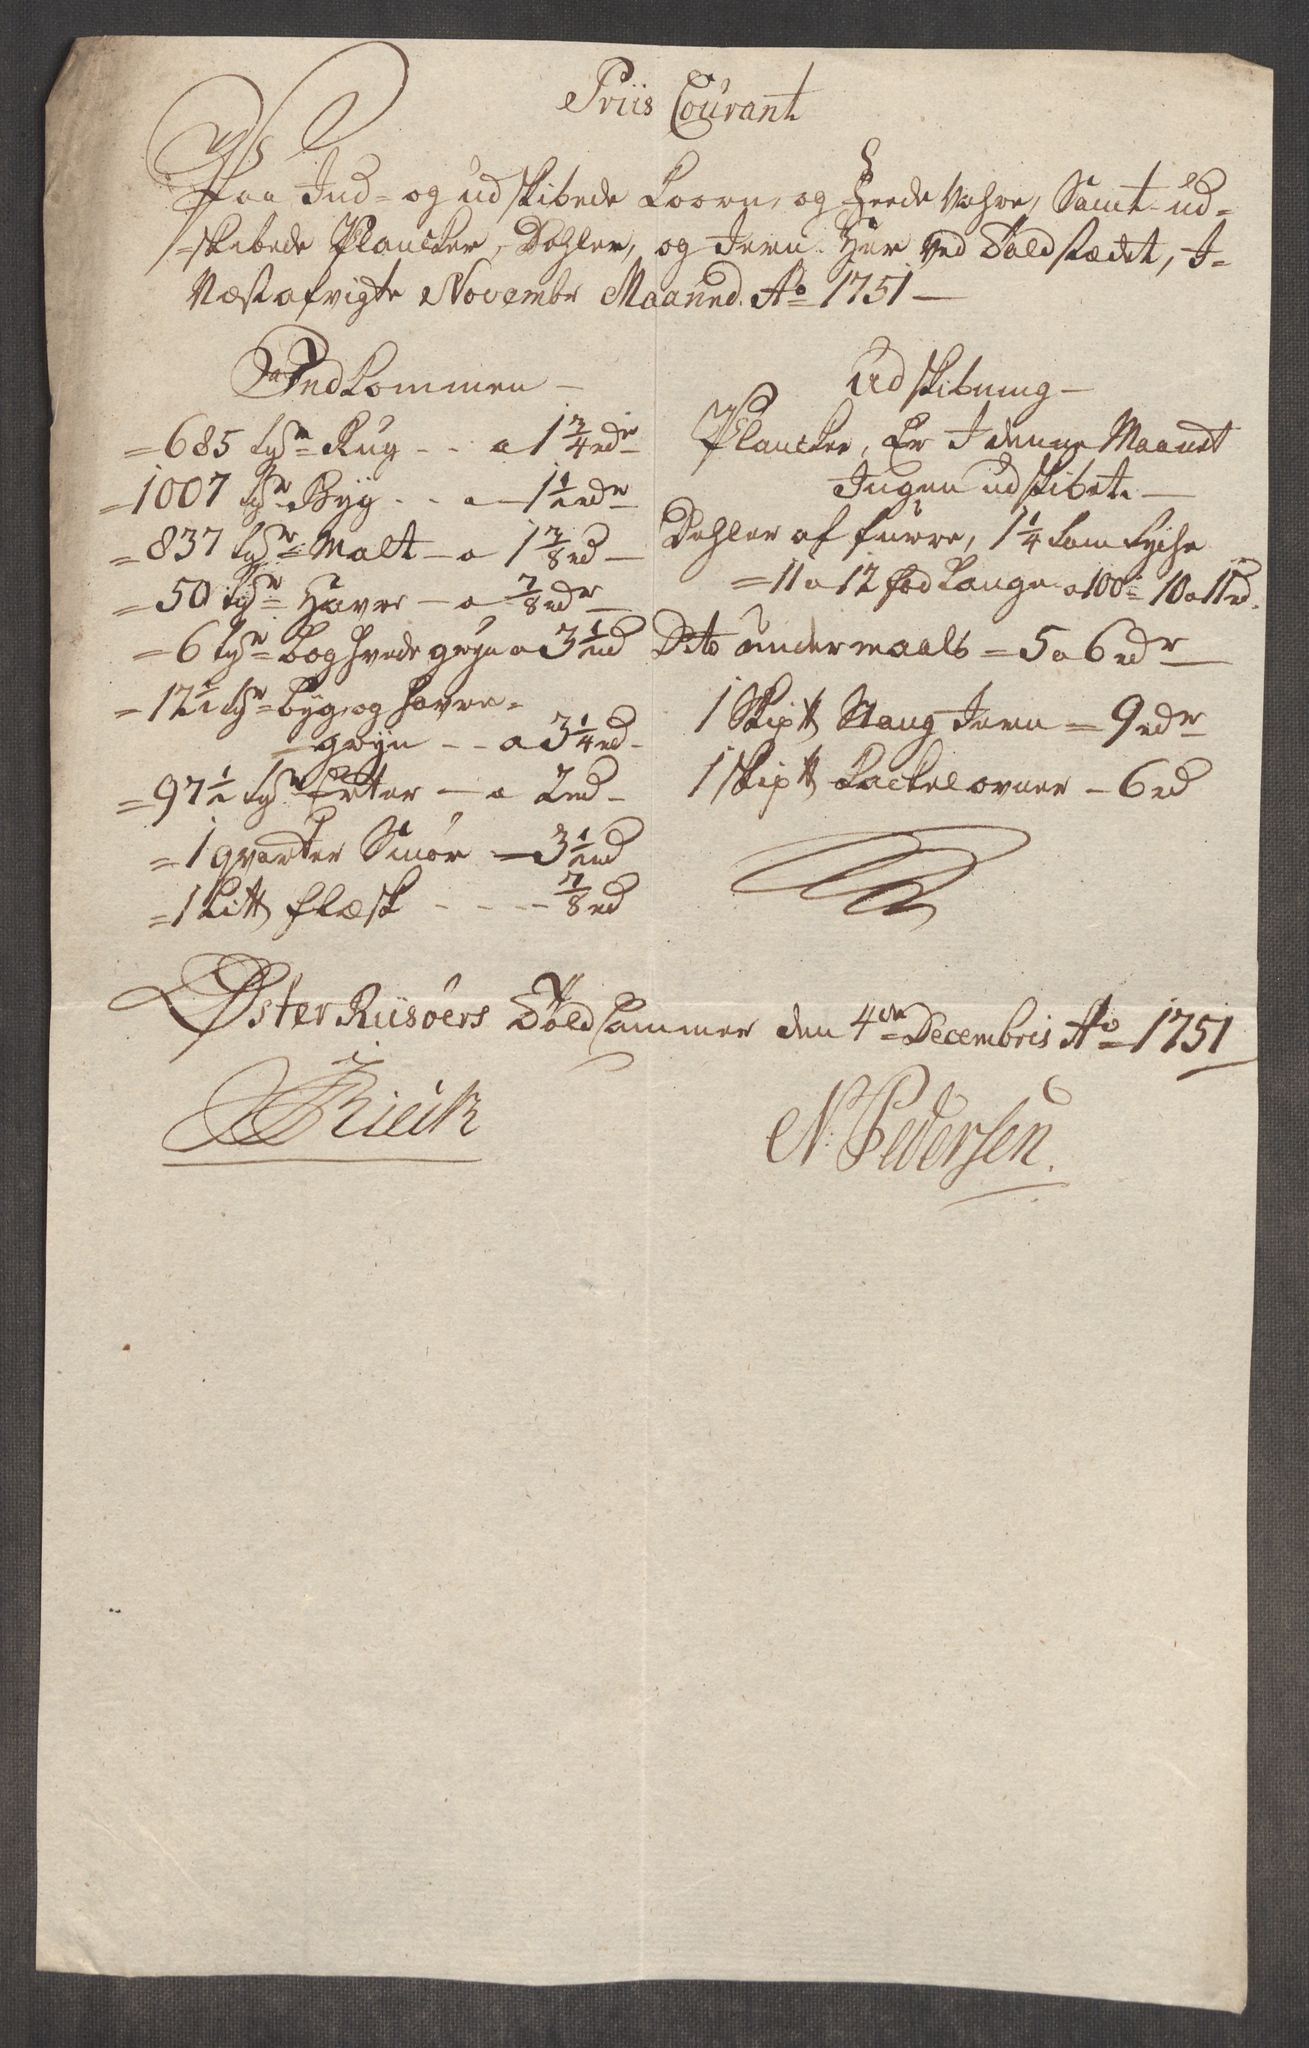 Priis Courant
Paa Ind- og udskibede Koorn, og Feede Vahre, Samt ud-
skibede Plancker, Dehler, og Jern. Her ved Toldstædet, I
Næstafvigte Novembr Maaned. Ao 1751 —
Indkommen —
= 685 tdr Rug - - a 1 3/4 rdr
= 1007 tdr Byg - - a 1 1/2 rdr
= 837 tdr Malt - a 1 7/8 rd
= 50 tdr Havre - a 7/8 rdr
= 6 tdr boghvede gryn a 3 1/2 rd
= 12 1/2 tdr byg og havre-
gryn - - a 3 1/4 rd
= 97 1/2 tdr Erter - a 2 rd
= 1 qvarter Smør - 3 1/2 rd
= 1 Lt flæsk - - - - 7/8 rd
Udskibning —
Plancker, Er I denne Maanet
Ingen udskibet. —
Dehler af furre, 1 1/4 tom tyche
= 11 a 12 fod Lange a 100 = 10 a 11 rd.
Dito undermaals = 5 a 6 rdr
1 Skip Stang Jern = 9 rdr
1 skip Kackelovner - 6 rd
Øster Riisøers Toldkammer den 4de Decembris Ao 1751
N: Pedersen.